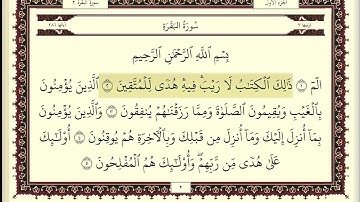 الجزء الأول
سورة البقرة ٢
ترتيبها ٢
آياتها ٢٨٦
سُورَةُ البَقَرَةِ
بِسْمِ اللَّهِ الرَّحْمَٰنِ الرَّحِيمِ
الٓمٓ ۝١ ذَٰلِكَ الْكِتَابُ لَا رَيْبَ ۛ فِيهِ ۛ هُدًى لِّلْمُتَّقِينَ ۝٢ الَّذِينَ يُؤْمِنُونَ
بِالْغَيْبِ وَيُقِيمُونَ الصَّلَوٰةَ وَمِمَّا رَزَقْنَٰهُمْ يُنفِقُونَ ۝٣ وَالَّذِينَ يُؤْمِنُونَ
بِمَآ أُنزِلَ إِلَيْكَ وَمَآ أُنزِلَ مِن قَبْلِكَ وَبِالْآخِرَةِ هُمْ يُوقِنُونَ ۝٤ أُولَٰٓئِكَ
عَلَىٰ هُدًى مِّن رَّبِّهِمْ ۖ وَأُولَٰٓئِكَ هُمُ الْمُفْلِحُونَ ۝٥
٢